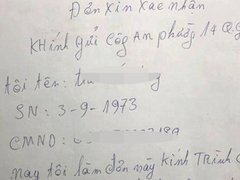 Đơn xin xác nhân
Khính gửi Côg An phường 14 Q.
tôi tên:
SN: 3-9-1973
CMND:
Nay tôi làm đơn này kính Trình